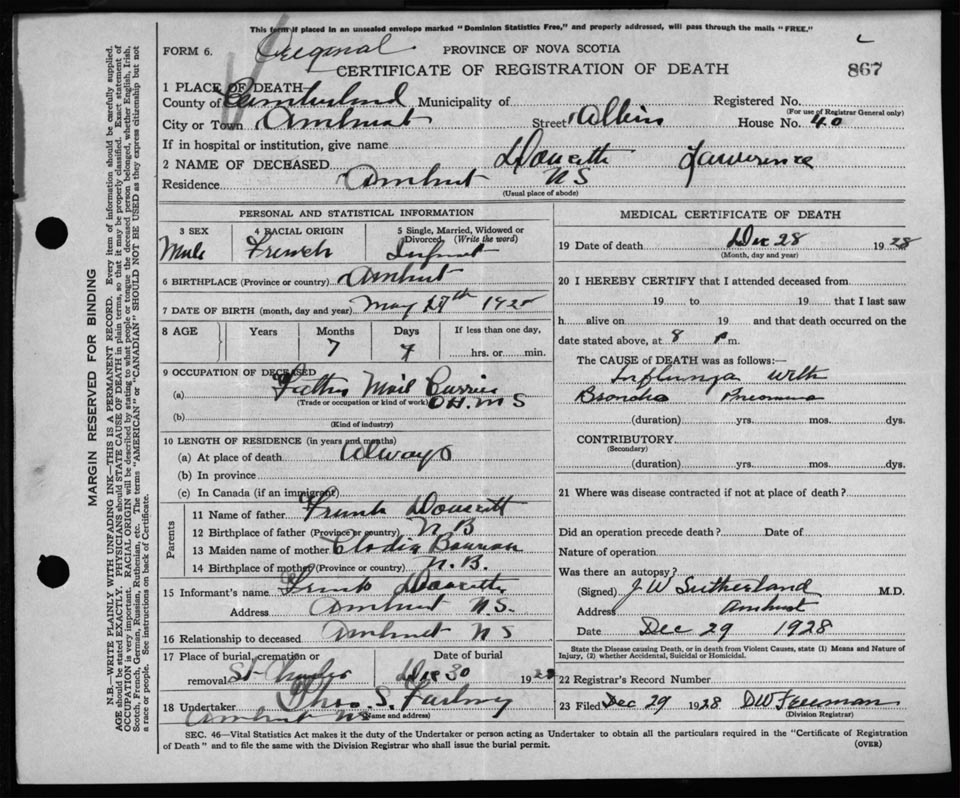 This form if placed in an unsealed envelope marked "Dominion Statistics Free," and properly addressed, will pass through the mails "FREE."
FORM 6. Original PROVINCE OF NOVA SCOTIA
CERTIFICATE OF REGISTRATION OF DEATH 867
1 PLACE OF DEATH—
County of Cumberland Municipality of Registered No.
(For use of Registrar General only)
City or Town Amherst Street Albion House No. 40
If in hospital or institution, give name
2 NAME OF DECEASED Doucette Lawrence
Residence Amherst NS
(Usual place of abode)
PERSONAL AND STATISTICAL INFORMATION
3 SEX 4 RACIAL ORIGIN 5 Single, Married, Widowed or Divorced (Write the word)
Male French Infant
6 BIRTHPLACE (Province or country) Amherst
7 DATE OF BIRTH (month, day and year) May 27th 192
8 AGE Years Months Days If less than one day,
7 hrs. or min.
9 OCCUPATION OF DECEASED
(a) Father Mail Carrier
(Trade or occupation or kind of work) O H. M S
(b)
(Kind of industry)
10 LENGTH OF RESIDENCE (in years and months)
(a) At place of death Always
(b) In province
(c) In Canada (if an immigrant)
Parents
11 Name of father Frank Doucett
12 Birthplace of father (Province or country) N. B
13 Maiden name of mother
14 Birthplace of mother (Province or country) N. B.
15 Informant's name Frank Doucette
Address Amherst N.S.
16 Relationship to deceased Amherst NS
17 Place of burial, cremation or removal St Charles Date of burial Dec 30 1928
18 Undertaker Thos. S.
(Name and address)
Amherst NS
MEDICAL CERTIFICATE OF DEATH
19 Date of death Dec 28 1928
(Month, day and year)
20 I HEREBY CERTIFY that I attended deceased from
19 to 19 that I last saw
h alive on 19 and that death occurred on the
date stated above, at 8 P m.
The CAUSE of DEATH was as follows:—
Influenza with
Broncho Pneumonia
(duration) yrs. mos. dys.
CONTRIBUTORY
(Secondary)
(duration) yrs. mos. dys.
21 Where was disease contracted if not at place of death?
Did an operation precede death? Date of
Nature of operation
Was there an autopsy?
(Signed) J. W Sutherland M.D.
Address Amherst
Date Dec 29 1928
State the Disease causing Death, or in death from Violent Causes, state (1) Means and Nature of Injury, (2) whether Accidental, Suicidal or Homicidal.
22 Registrar's Record Number
23 Filed Dec 29 1928 DW Freeman
(Division Registrar)
SEC. 46—Vital Statistics Act makes it the duty of the Undertaker or person acting as Undertaker to obtain all the particulars required in the "Certificate of Registration
of Death" and to file the same with the Division Registrar who shall issue the burial permit. (OVER)
MARGIN RESERVED FOR BINDING
N.B.—WRITE PLAINLY WITH UNFADING INK—THIS IS A PERMANENT RECORD. Every item of information should be carefully supplied.
AGE should be stated EXACTLY. PHYSICIANS should STATE CAUSE OF DEATH in plain terms, so that it may be properly classified. Exact statement of
OCCUPATION is very important. RACIAL ORIGIN will be described by stating to what people or tongue the deceased person belonged, whether English, Irish,
Scotch, French, German, Russian, Ruthenian, etc. The terms "AMERICAN" or "CANADIAN" SHOULD NOT BE USED as they express citizenship but not
a race or people. See instructions on back of Certificate.